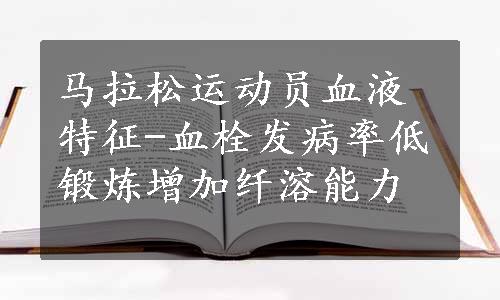 马拉松运动员血液
特征-血栓发病率低
锻炼增加纤溶能力